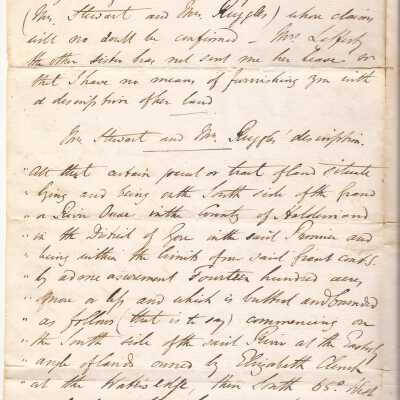 (Mrs. Stewart and Mrs. Ruggles) whose claims
will no doubt be confirmed — Mrs Lafferty
the other sister has not sent me her lease or
that I have no means of furnishing you with
a description of her land
Mrs Stewart and Mrs. Ruggles' description.
All that certain parcel or tract of land situate
" lying and being on the South side of the Grand
" or River Ouse in the County of Haldimand
" in the District of Gore in the said Province and
" being within the limits of our said Grant contg.
" by admeasurement Fourteen hundred acres
" more or less and which is butted and bounded
" as follows (that is to say) commencing on
" the South side of the said River at the Easterly
" angle of lands owned by Elizabeth Clench
" at the Waters edge, then South 65.° West